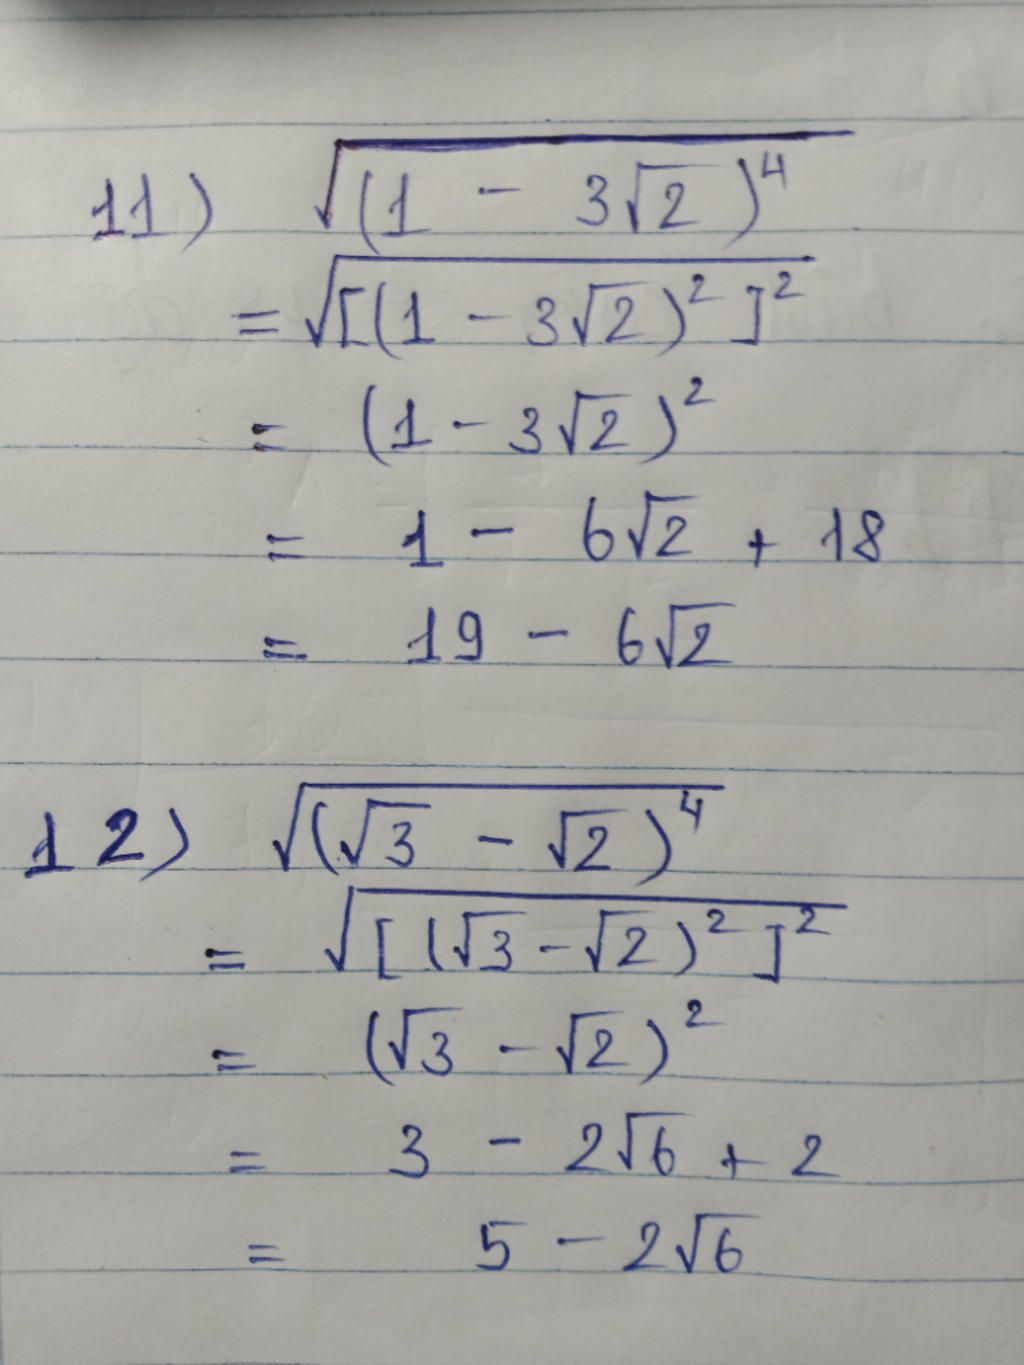 11) √(1 - 3√2)⁴
= √[(1 - 3√2)²]²
= (1 - 3√2)²
= 1 - 6√2 + 18
= 19 - 6√2
12) √(√3 - √2)⁴
= √[(√3 - √2)²]²
= (√3 - √2)²
= 3 - 2√6 + 2
= 5 - 2√6